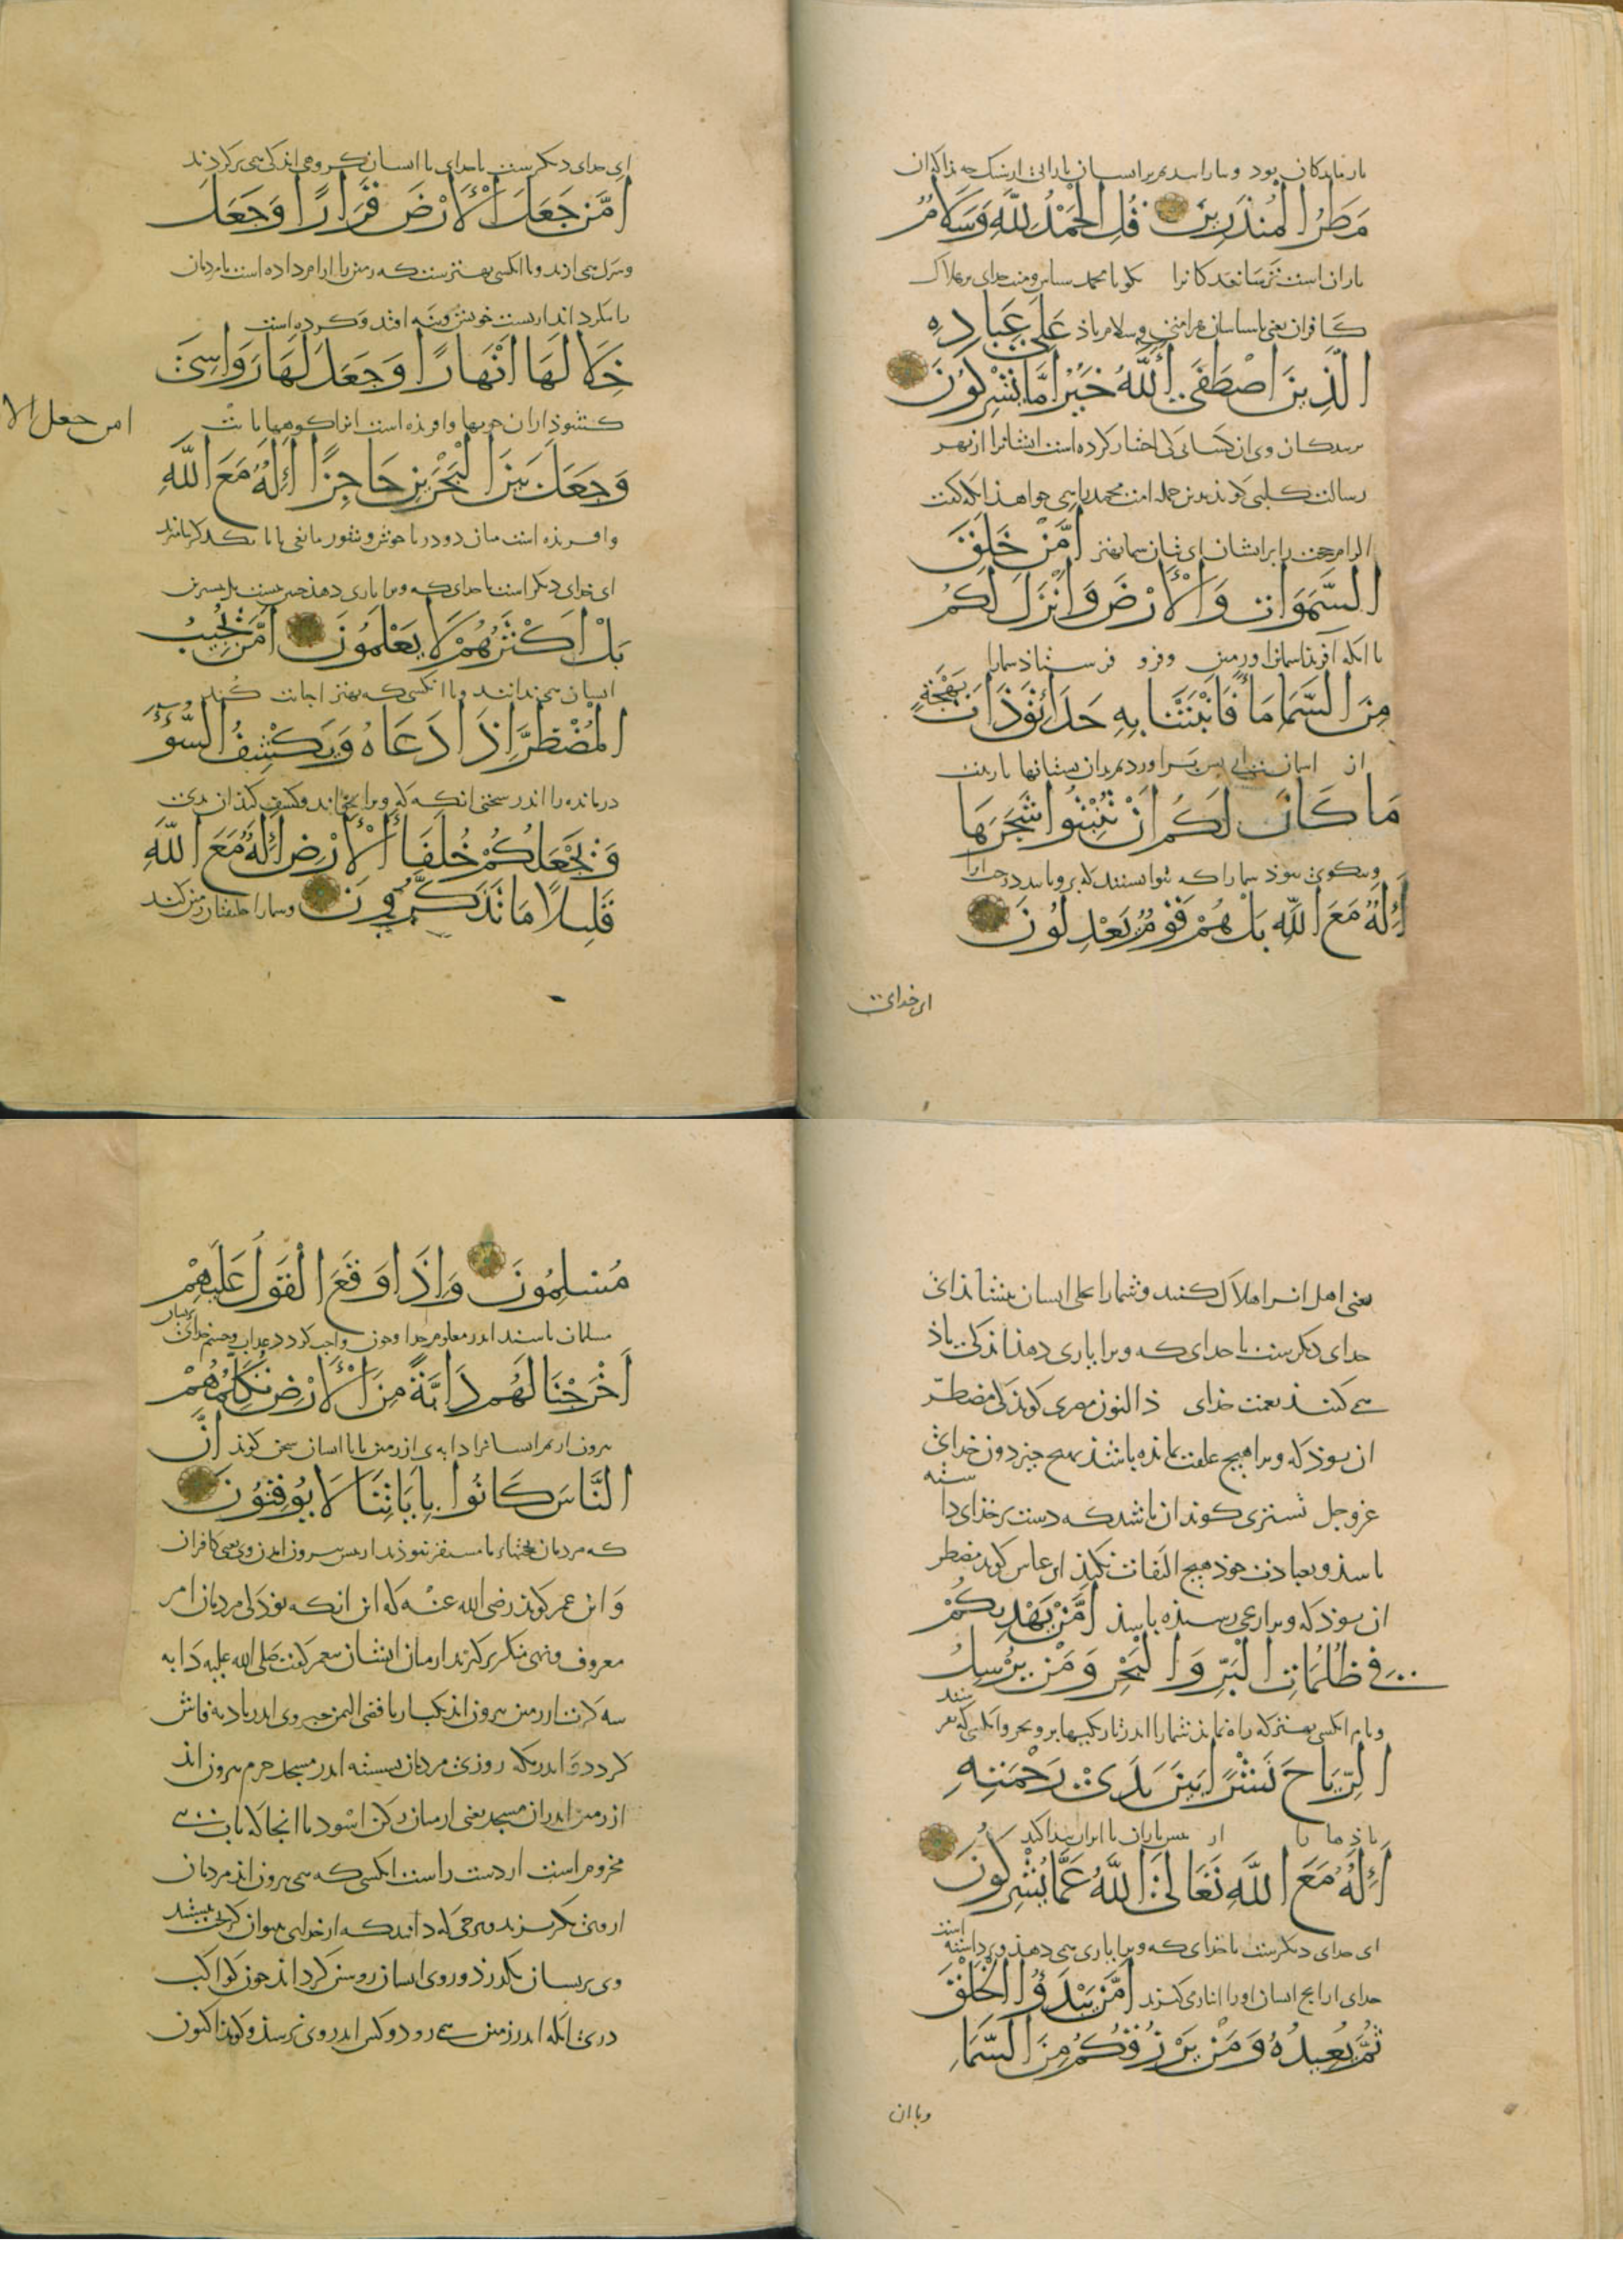 باز ماندکان بود و ببارانیدیم بر ایشان بارانی از سنک
مَطَرُ الْمُنْذَرِينَ قُلِ الْحَمْدُ لِلَّهِ وَسَلَامٌ
باران است ترسانیدکانرا بکو یا محمد سپاس و منت خدای بر هلاک
کافران یعنی باسپاسان و سلام باذ عَلَى عِبَادِهِ
الَّذِينَ اصْطَفَى أَللَّهُ خَيْرٌ أَمَّا تُشْرِكُونَ
بر بندکان وی ان کسانی کی اختیار کرده است ایشانرا از بهر
رسالت کلبی کوید بدین جمله امت محمد را می خواهذ انکه کفت
أَمَّنْ خَلَقَ
السَّمَوَاتِ وَالْأَرْضَ وَأَنْزَلَ لَكُمْ
یا انکه آفرید اسمانها و زمین و فرو فرستاذ شما را
مِنَ السَّمَاءِ مَاءً فَأَنْبَتْنَا بِهِ حَدَائِقَ ذَاتَ بَهْجَةٍ
از اسمان ابی پس براوردیم بدان بستانها با زینت
مَا كَانَ لَكُمْ أَنْ تُنْبِتُوا شَجَرَهَا
و نیکوی نبوذ شما را که توانستید که برویانید درختانرا
أَئِلَهٌ مَعَ اللَّهِ بَلْ هُمْ قَوْمٌ يَعْدِلُونَ
ای خدای
ای خدای دیکر ست با خدای یا ایشان کروهی اند کی می برکردند
أَمَّنْ جَعَلَ الْأَرْضَ قَرَارًا وَجَعَلَ
و شرک می ارند و یا انکسی بهترست که زمین را ارام داده است تا مردمان
را نکرداند از پشت خویش و نیفتد و کرده است
خِلَالَهَا أَنْهَارًا وَجَعَلَ لَهَا رَوَاسِيَ
امن جعل الا
کشوذ از ان جویها و افریده است انرا کوهها
وَجَعَلَ بَيْنَ الْبَحْرَيْنِ حَاجِزًا أَئِلَهٌ مَعَ اللَّهِ
و افریده است میان دو دریا خوش و شور مانعی تا با یکدکر نیامیزند
ای خدای دیکر است با خدای که ویرا یاری دهذ
بَلْ أَكْثَرُهُمْ لَا يَعْلَمُونَ أَمَّنْ يُجِيبُ
ایشان می ندانند و یا انکسی که بهتر اجابت کند
الْمُضْطَرَّ إِذَا دَعَاهُ وَيَكْشِفُ السُّوءَ
درمانده را اندر سختی انکه که ویرا بخواند و کشف کند ان بدی
وَيَجْعَلُكُمْ خُلَفَاءَ الْأَرْضِ أَئِلَهٌ مَعَ اللَّهِ
قَلِيلًا مَا تَذَكَّرُونَ و شما را خلیفتان زمین کند
یعنی اهل انرا هلاک کنند و شما را بجای ایشان بنشاند ای
خدای دیکر ست با خدای که ویرا یاری دهذ اندکی یاذ
می کنند نعمت خدای ذالنون مصری کوید کی مضطر
ان بوذ که ویرا هیچ علقت نمانده باشذ بهیچ چیز دون خدای
عز و جل تستری کوید ان باشد که دست بر خدای
باشذ و بعبادت خوذ هیچ التفات نکند ابن عباس کوید مضطر
ان بوذ که ویرا رنجی رسیذه باشذ أَمَّنْ يَهْدِيكُمْ
فِي ظُلُمَاتِ الْبَرِّ وَالْبَحْرِ وَمَنْ يُرْسِلُ
و یا انکسی بهتر که راه نماید شما را اندر تاریکیها بر و بحر و انکسی که
الرِّيَاحَ نَشْرًا بَيْنَ يَدَيْ رَحْمَتِهِ
باذها را از پس باران تا ابر پیدا کند
أَئِلَهٌ مَعَ اللَّهِ تَعَالَى اللَّهُ عَمَّا يُشْرِكُونَ
ای خدای دیکرست با خدای که ویرا یاری می دهذ
خدای از انچ ایشان او را انباز می کیرند أَمَّنْ يَبْدَؤُا الْخَلْقَ
ثُمَّ يُعِيدُهُ وَمَنْ يَرْزُقُكُمْ مِنَ السَّمَاءِ
و یا ان
مُسْلِمُونَ وَإِذَا وَقَعَ الْقَوْلُ عَلَيْهِمْ
مسلمان باشند اندر معلوم خدا و چون واجب کردد عذاب و خشم خدای
أَخْرَجْنَا لَهُمْ دَابَّةً مِنَ الْأَرْضِ تُكَلِّمُهُمْ
بیرون اریم ایشانرا دابه ی از زمین تا با ایشان سخن کوید أَنَّ
النَّاسَ كَانُوا بِآيَاتِنَا لَا يُوقِنُونَ
که مردمان بحجتهاء ما مستیقن نبوذند از پس بیرون امدن وی یعنی کافران
و ابن عمر کوید رضی الله عنه که این انکه بوذ کی مردمان امر
معروف و نهی منکر بر کیرند از میان ایشان پیغمبر کفت صلی الله علیه دابه
سه کرت از زمین بیرون اید یکبار باقصی الیمن خبر وی اندر بادیه فاش
کردد اندر مکه روزی مردمان نشسته اندر مسجد حرم بیرون اید
از زمین اندر ان مسجد یعنی از میان رکن اسود تا انجا که باب بنی
مخزوم است از دست راست انکسی که می بیرون اید مردمان
از وی بکریزند و هرچی که دانند که از خدای نتوان کریخت
وی بر ایشان بکذرد و روی ایشان روشن کرداند چون کواکب
دری انکه اندر زمین می رود و کس اندر وی نرسد و کوید اکنون